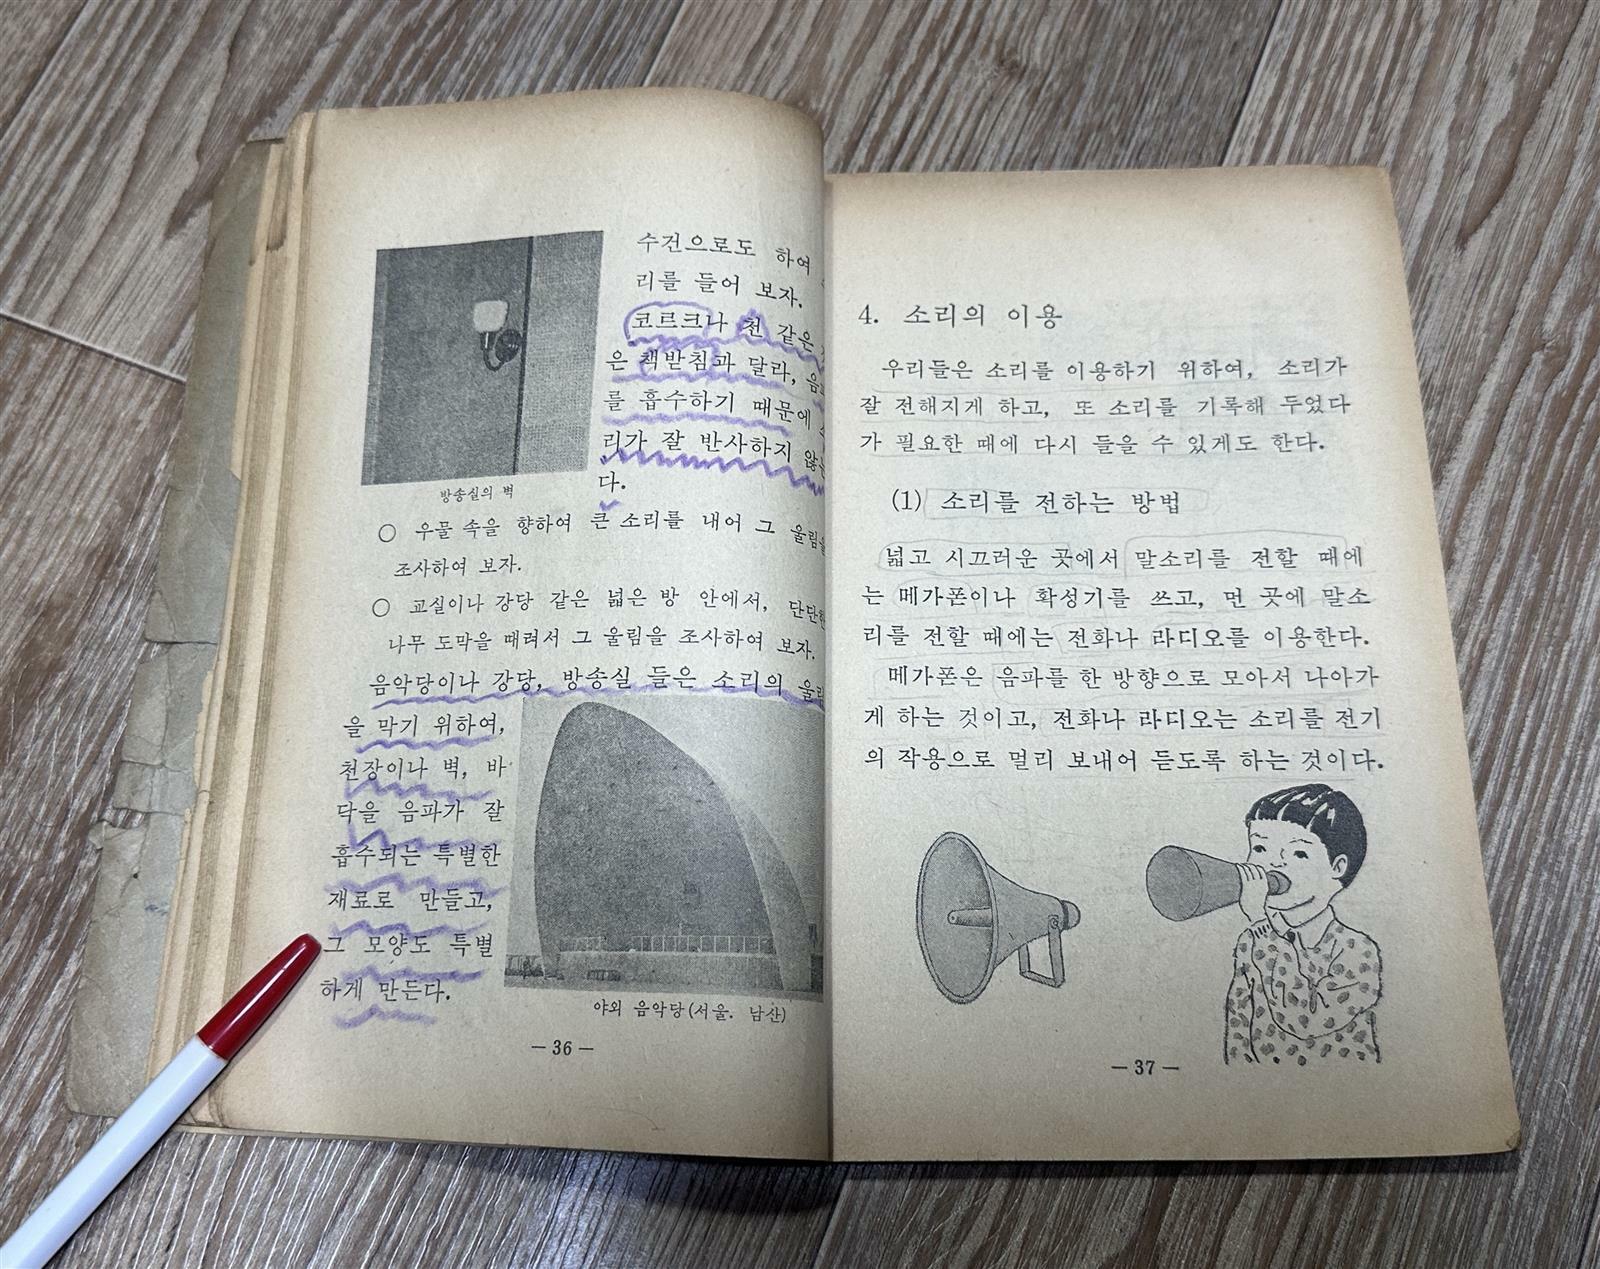 수건으로도 하여
리를 들어 보자.
코르크나 천 같은
은 책받침과 달라, 음파
를 흡수하기 때문에 소
리가 잘 반사하지 않는
다.
방송실의 벽
○ 우물 속을 향하여 큰 소리를 내어 그 울림을
조사하여 보자.
○ 교실이나 강당 같은 넓은 방 안에서, 단단한
나무 도막을 때려서 그 울림을 조사하여 보자.
음악당이나 강당, 방송실 들은 소리의 울림
을 막기 위하여,
천장이나 벽, 바
닥을 음파가 잘
흡수되는 특별한
재료로 만들고,
그 모양도 특별
하게 만든다.
야외 음악당(서울. 남산)
— 36 —
4. 소리의 이용
우리들은 소리를 이용하기 위하여, 소리가
잘 전해지게 하고, 또 소리를 기록해 두었다
가 필요한 때에 다시 들을 수 있게도 한다.
(1) 소리를 전하는 방법
넓고 시끄러운 곳에서 말소리를 전할 때에
는 메가폰이나 확성기를 쓰고, 먼 곳에 말소
리를 전할 때에는 전화나 라디오를 이용한다.
메가폰은 음파를 한 방향으로 모아서 나아가
게 하는 것이고, 전화나 라디오는 소리를 전기
의 작용으로 멀리 보내어 듣도록 하는 것이다.
— 37 —